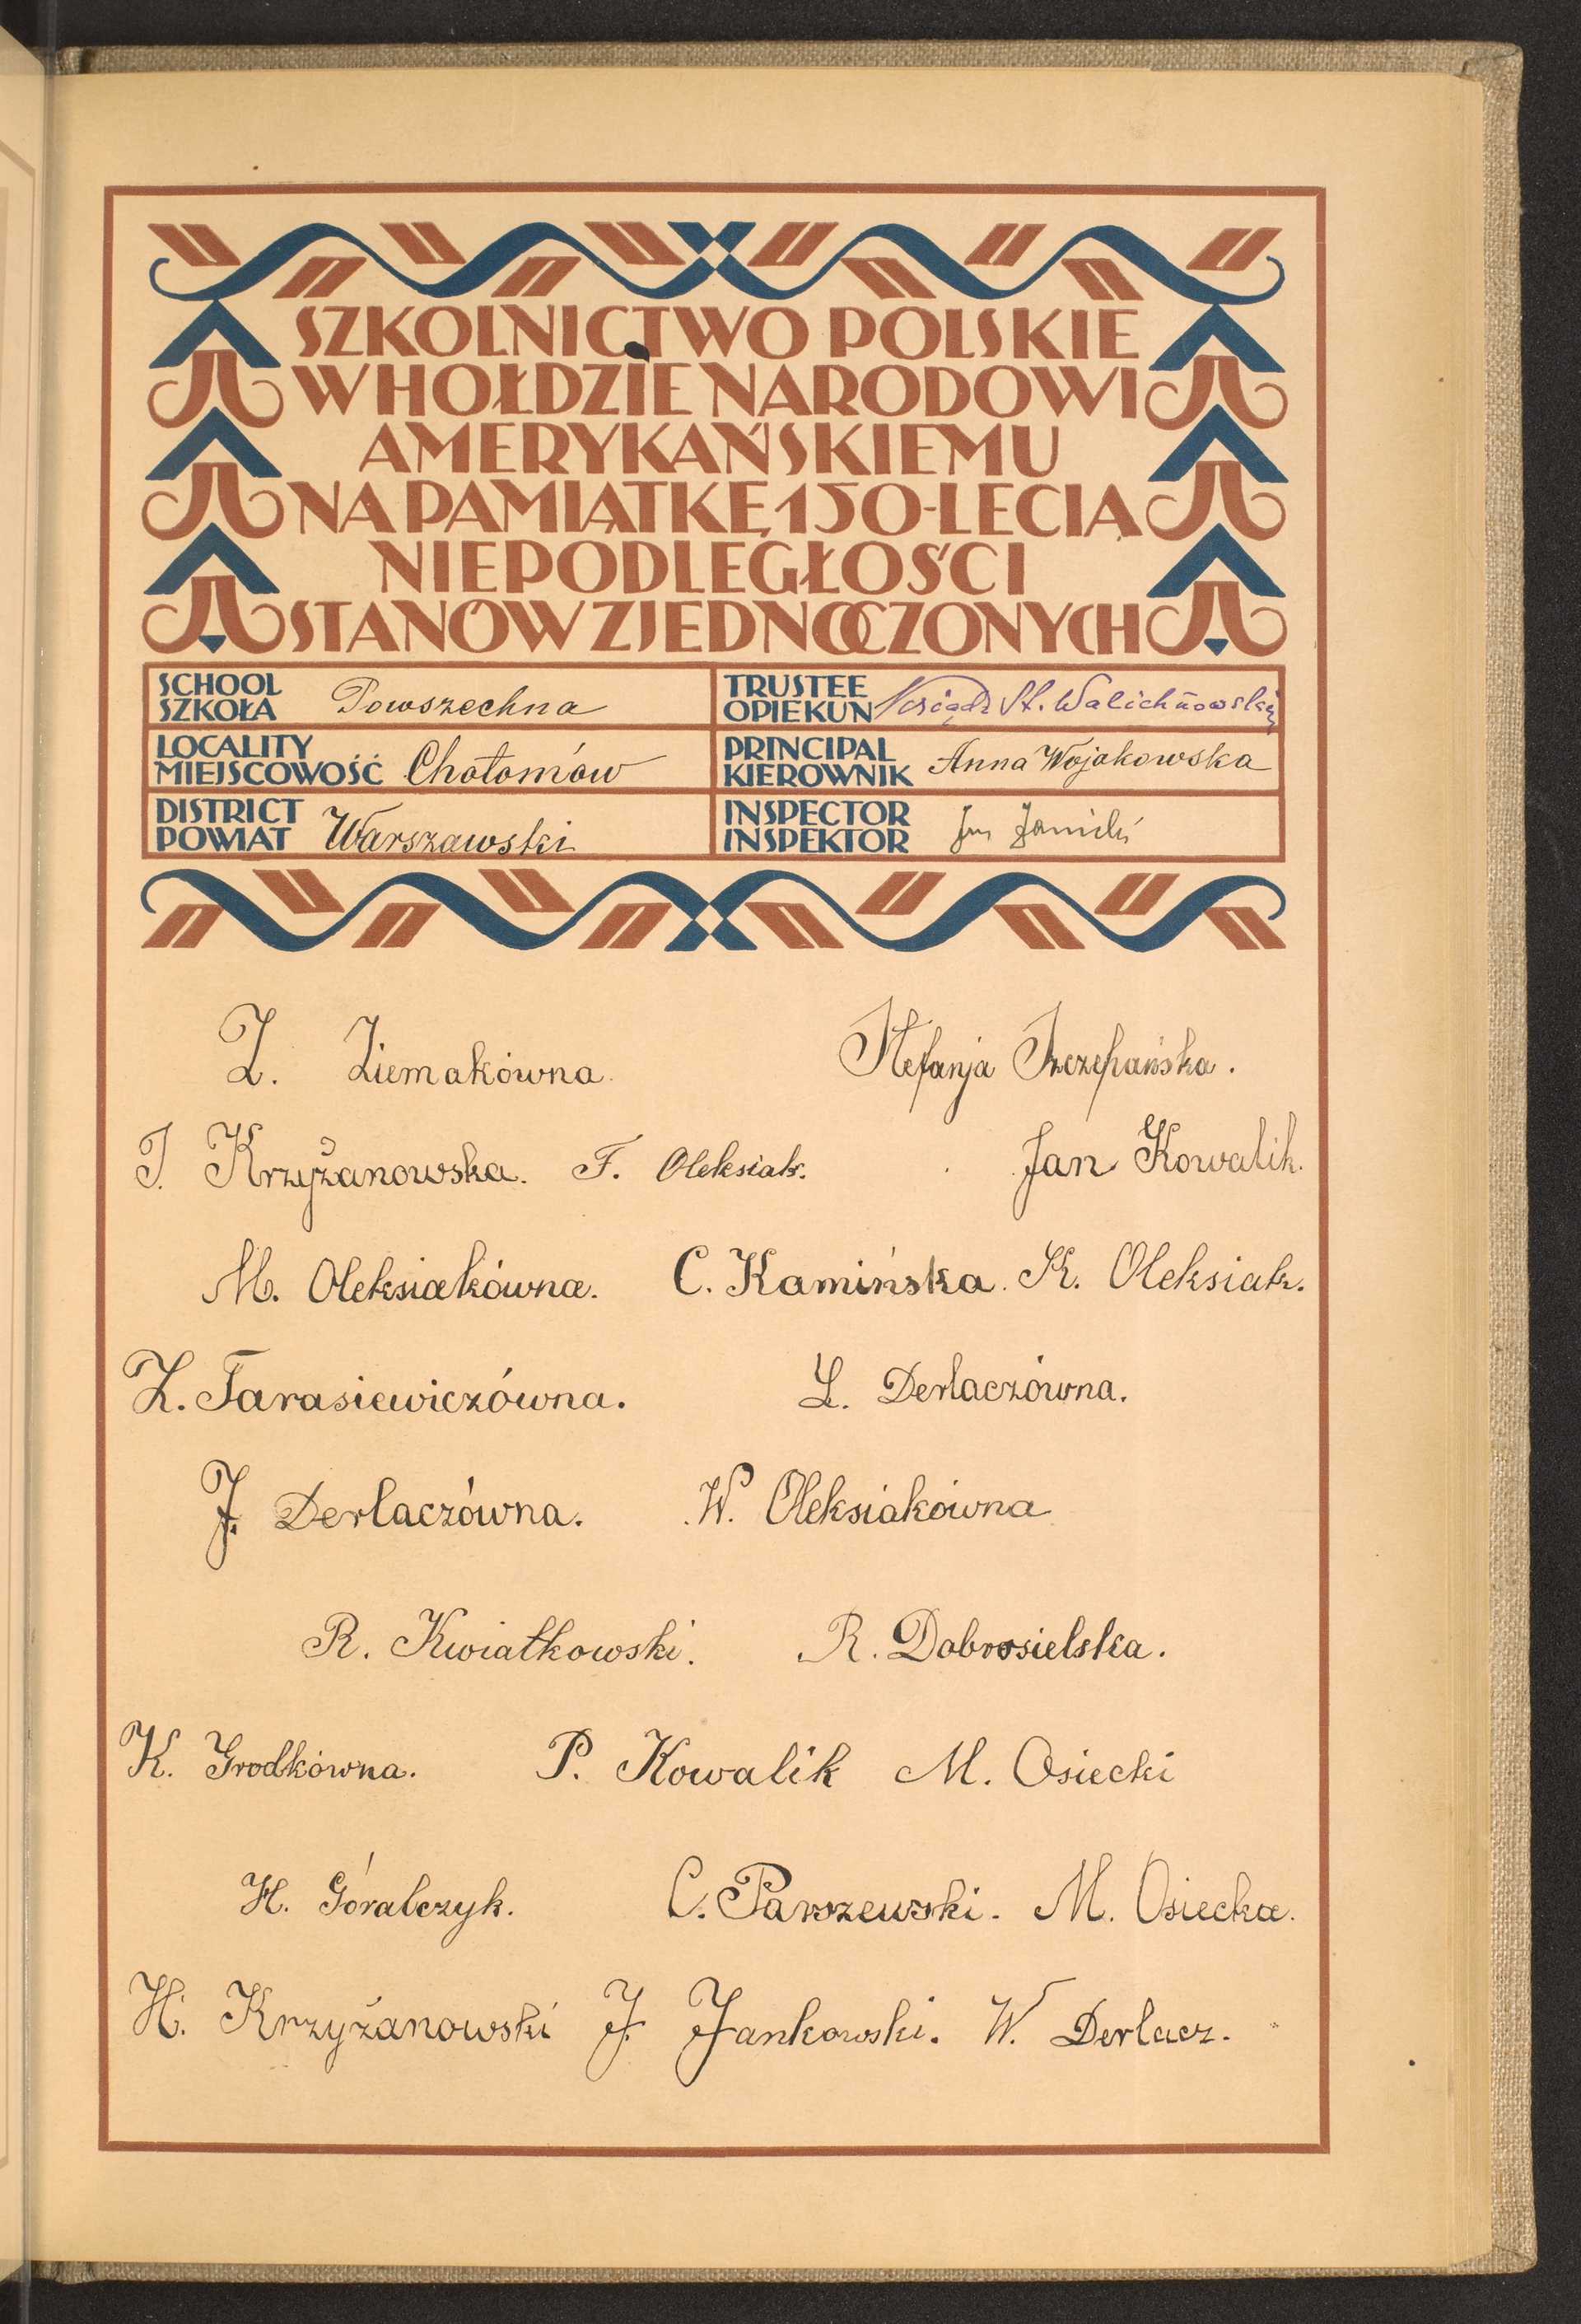 SZKOLNICTWO POLSKIE
W HOŁDZIE NARODOWI
AMERYKAŃSKIEMU
NA PAMIĄTKĘ 150-LECIA
NIEPODLEGŁOŚCI
STANÓW ZJEDNOCZONYCH
SCHOOL
SZKOŁA Powszechna
TRUSTEE
OPIEKUN Ksiądz St. Walichnowski
LOCALITY
MIEJSCOWOŚĆ Chotomów
PRINCIPAL
KIEROWNIK Anna Wojakowska
DISTRICT
POWIAT Warszawski
INSPECTOR
INSPEKTOR
Z. Ziemakówna. Stefanja Szczepańska.
J. Krzyżanowska. F. Oleksiak. Jan Kowalik.
M. Oleksiakówna. C. Kamińska. K. Oleksiak.
Z. Tarasiewiczówna. L. Derlaczówna.
J. Derlaczówna. W. Oleksiakówna
R. Kwiatkowski. R. Dobrosielska.
K. Grodkówna. P. Kowalik M. Osiecki
H. Góralczyk. C. Parszewski. M. Osiecka.
H. Krzyżanowski J. Jankowski. W. Derlacz.